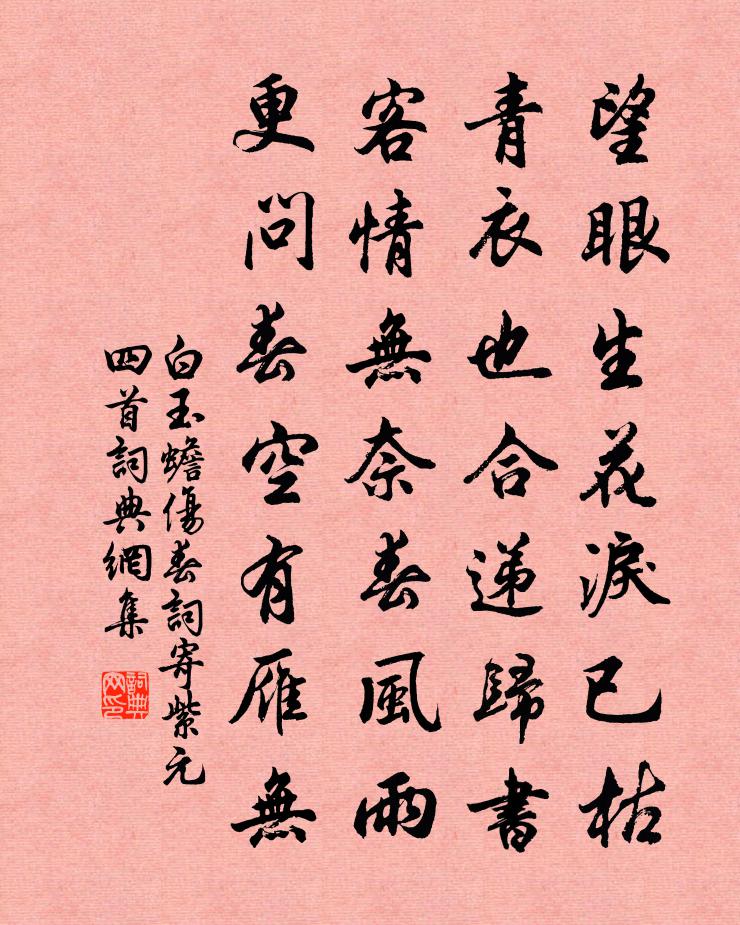 望眼生花淚已枯
青衣也合递歸書
客情無奈春風雨
更問春空有雁無
白玉蟾傷春詞寄紫元
四首詞典網集
詞典
网印